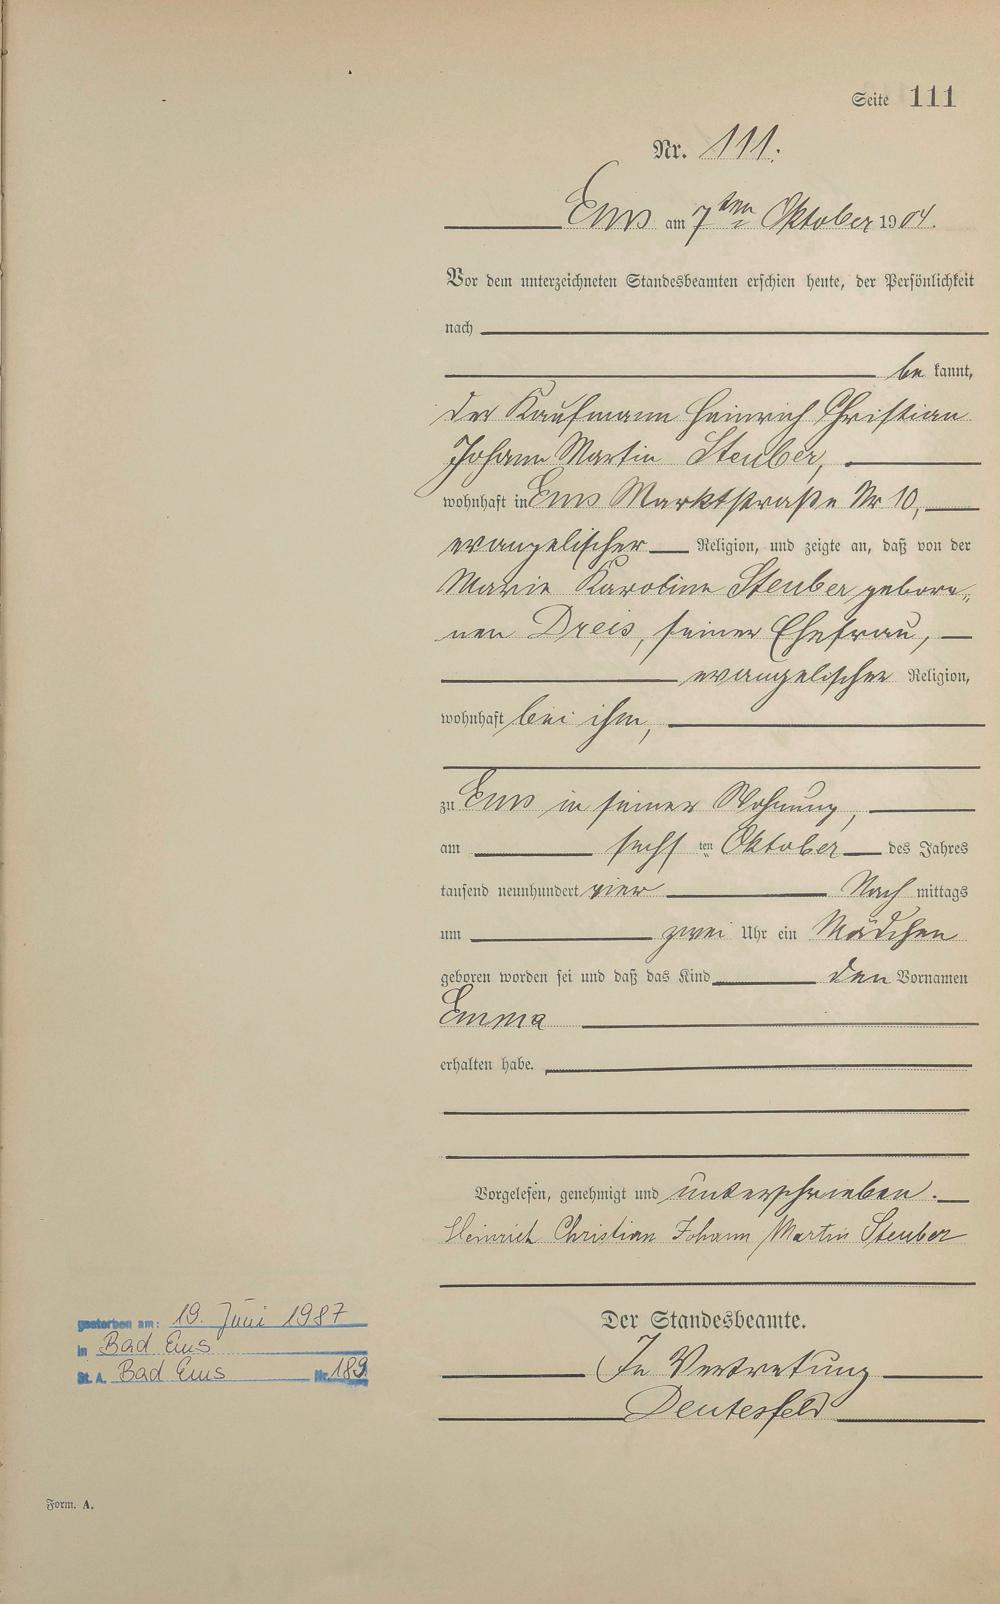 Seite 111
Nr. 111.
Ems am 7ten Oktober 1904.
Vor dem unterzeichneten Standesbeamten erschien heute, der Persönlichkeit
nach
be kannt,
der Kaufmann Heinrich Christian
Johann Martin Steuber,
wohnhaft in Ems Marktstraße Nr 10,
evangelischer Religion, und zeigte an, daß von der
Marie Karoline Steuber gebore„
nen Dreis, seiner Ehefrau,
evangelischer Religion,
wohnhaft bei ihm,
zu Ems in seiner Wohnung,
am sechsten Oktober des Jahres
tausend neunhundert vier Nach mittags
um zwei Uhr ein Mädchen
geboren worden sei und daß das Kind den Vornamen
Emma
erhalten habe.
Vorgelesen, genehmigt und unterschrieben.
Heinrich Christian Johann Martin Steuber
Der Standesbeamte.
In Vertretung
Deutesfeld
gestorben am: 19. Juni 1987
in Bad Ems
St. A. Bad Ems Nr. 189
Form. A.